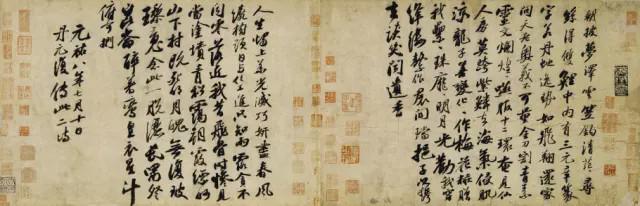 朝披夢澤雲笠釣清茫茫尋
絲得雙鯉中有三元章篆
字若丹蛇逸勢如飛翔還家
問天老奧義不可量金刀割青素
靈文爛煌煌嚥服十二環奄見仙
人房暮跨紫鱗去海氣侵肌
涼龍子善變化化作梅花妝贈
我纍纍珠靡靡明月光勸我穿
絳縷繫作裙間襠挹子以攜
去談笑聞遺香
人生燭上華光滅巧妍盡春風
繞樹頭日與化工進只知雨露貪不
聞零落近我昔飛骨時慘見
當塗墳青松靄朝霞縹緲
山下村既死明月魄無復玻
璃魂念此一脫灑長嘯登
崑崙醉著鸞皇衣星斗
俯可捫
元祐八年七月十日
丹元復傳此二詩